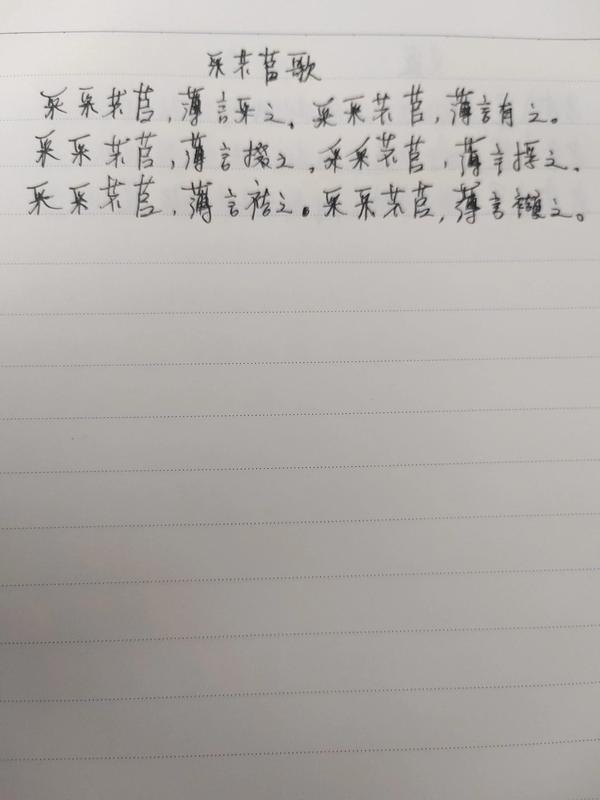 采芣苢歌
采采芣苢,薄言采之。采采芣苢,薄言有之。
采采芣苢,薄言掇之,采采芣苢,薄言捋之。
采采芣苢,薄言袺之。采采芣苢,薄言襭之。